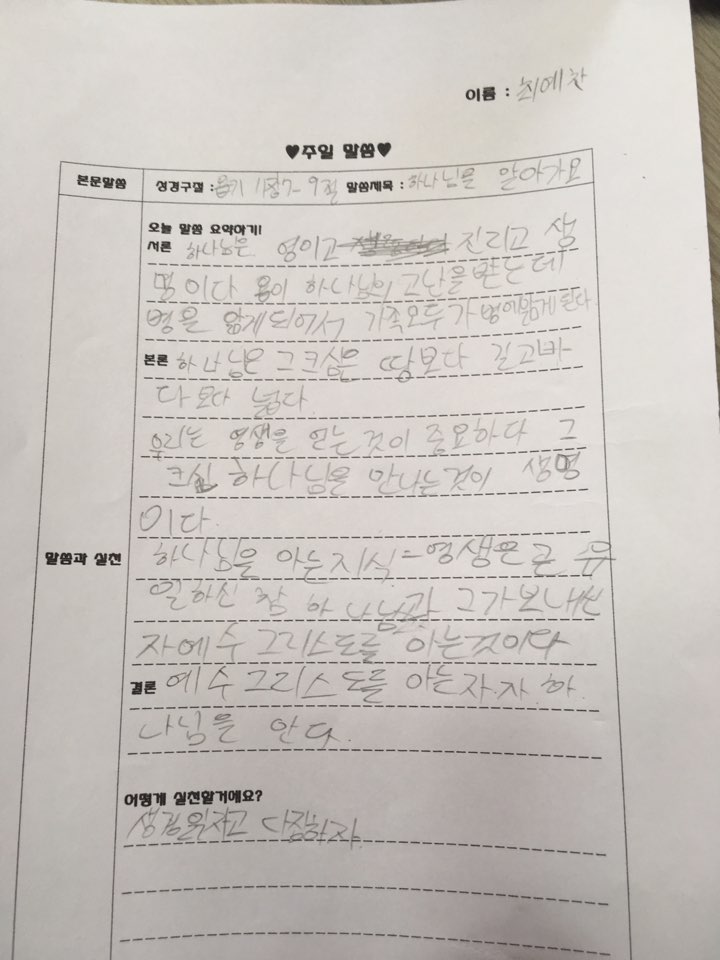 이름 : 최예찬
♥주일 말씀♥
본문말씀 성경구절 : 욥기 11장7-9절 말씀제목 : 하나님을 알아가요
오늘 말씀 요약하기!
서론 하나님은 영이고 진리고 생
명이다 욥이 하나님의 고난을 받는데
병을 앓게되어서 가족모두가 병에앓게된다
본론 하나님은 그크심은 땅보다 길고바
다보다 넓다.
우리는 영생을 얻는것이 중요하다 그
크심 하나님을 만나는것이 생명
이다.
말씀과 실천
하나님을 아는지식=영생은곧 유
일하신 참 하나님과 그가보내신
자예수그리스도를 아는것이다
결론 예수그리스도를 아는자.자 하.
나님을 안다.
어떻게 실천할거에요?
성경읽자고 다짐하자